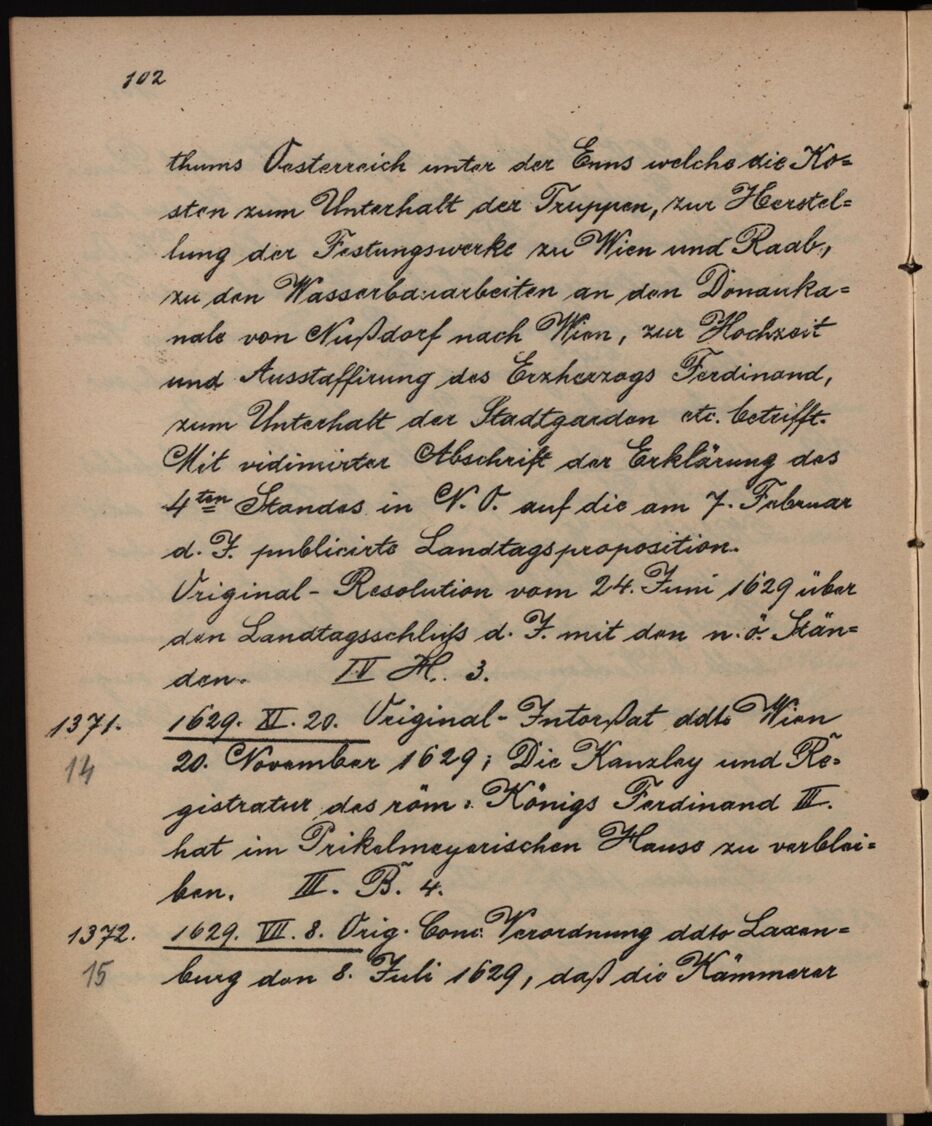 102
thums Oesterreich unter der Enns welche die Ko=
sten zum Unterhalt der Truppen, zur Herstel=
lung der Festungswerke zu Wien und Raab,
zu den Wasserbauarbeiten an den Donauka=
nale von Nußdorf nach Wien, zur Hochzeit
und Ausstaffirung des Erzherzogs Ferdinand,
zum Unterhalt der Stadtgarden etc. betrifft.
Mit vidimirter Abschrift der Erklärung des
4ten Standes in N. O. auf die am 7. Februar
d. J. publicirte Landtagsproposition.
Original-Resolution vom 24. Juni 1629 über
den Landtagsschluß d. J. mit den n. ö. Stän=
den. IV H. 3.
1371. 1629. XI. 20. Original-Intorßat ddto Wien
14 20. November 1629; Die Kanzley und Re=
gistratur des röm. Königs Ferdinand III.
hat im Prikelmeyerischen Hause zu verblei=
ben. III. B. 4.
1372. 1629. VII. 8. Orig. Conc. Verordnung ddto Laxen=
15 burg den 8. Juli 1629, daß die Kämmerer